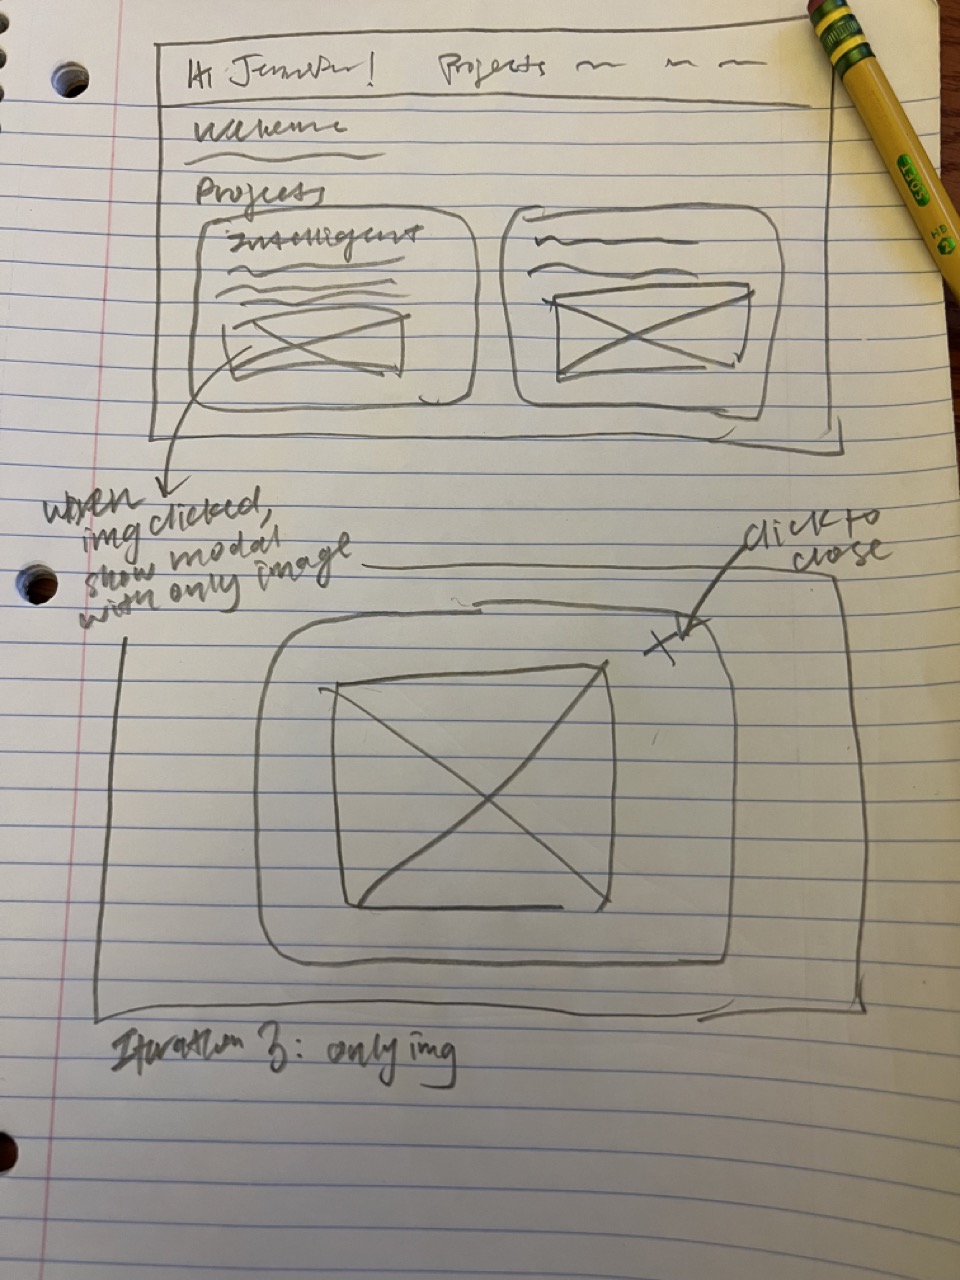 Hi Jennifer! Projects
Welcome
Projects
Intelligent
when
img clicked,
show modal
with only image
click to
close
Iteration 3: only img
SOFT
HB
2